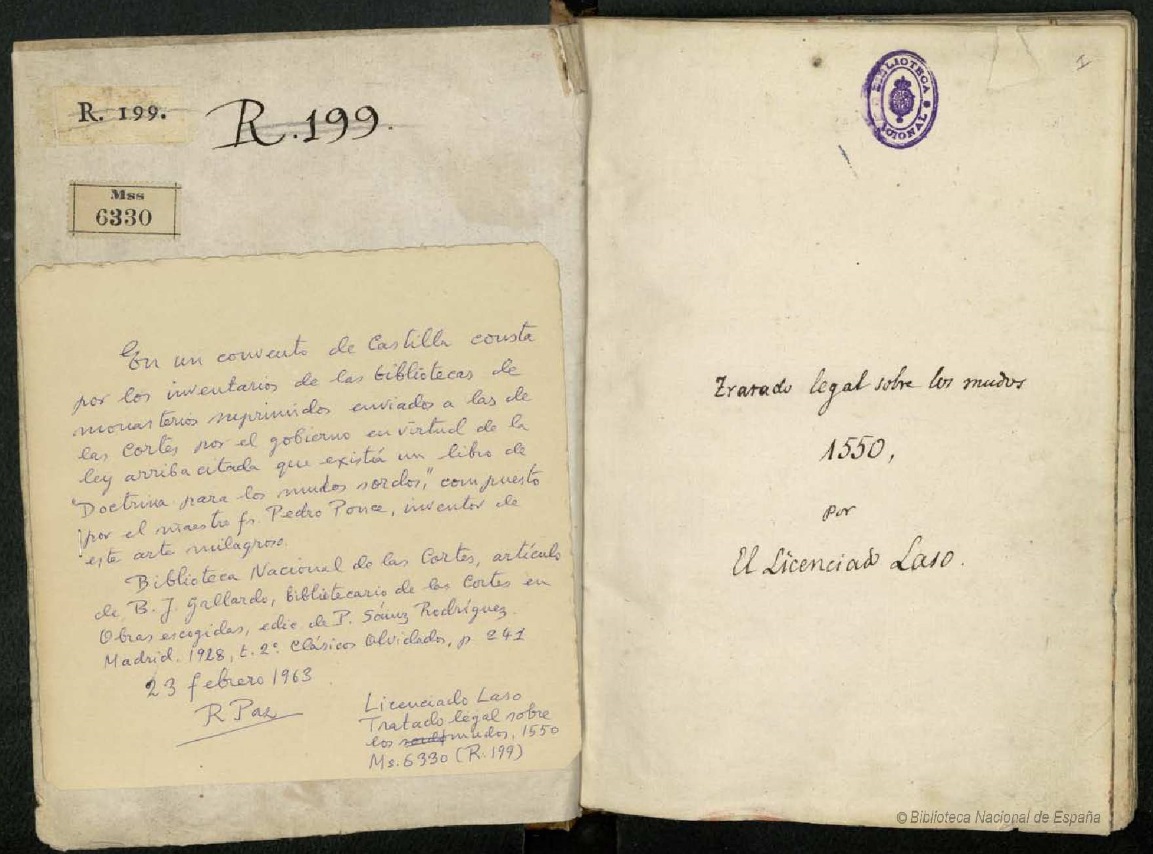 R. 199.
R. 199.
Mss
6330
En un convento de Castilla consta
por los inventarios de las bibliotecas de
monasterios suprimidos enviados a las de
las Cortes por el gobierno en virtud de la
ley arriba citada que existía un libro de
"Doctrina para los mudos sordos", compuesto
por el maestro fr. Pedro Ponce, inventor de
este arte milagroso.
Biblioteca Nacional de las Cortes, artículo
de B. J. Gallardo, bibliotecario de las Cortes en
Obras escogidas, edic. de P. Sáinz Rodríguez.
Madrid. 1928, t. 2º. Clásicos Olvidados, p. 241
23 febrero 1963
R Paz
Licenciado Laso
Tratado legal sobre
los mudos, 1550
Ms. 6330 (R. 199)
1
BIBLIOTECA
NACIONAL
Tratado legal sobre los mudos
1550,
por
El Licenciado Laso.
© Biblioteca Nacional de España